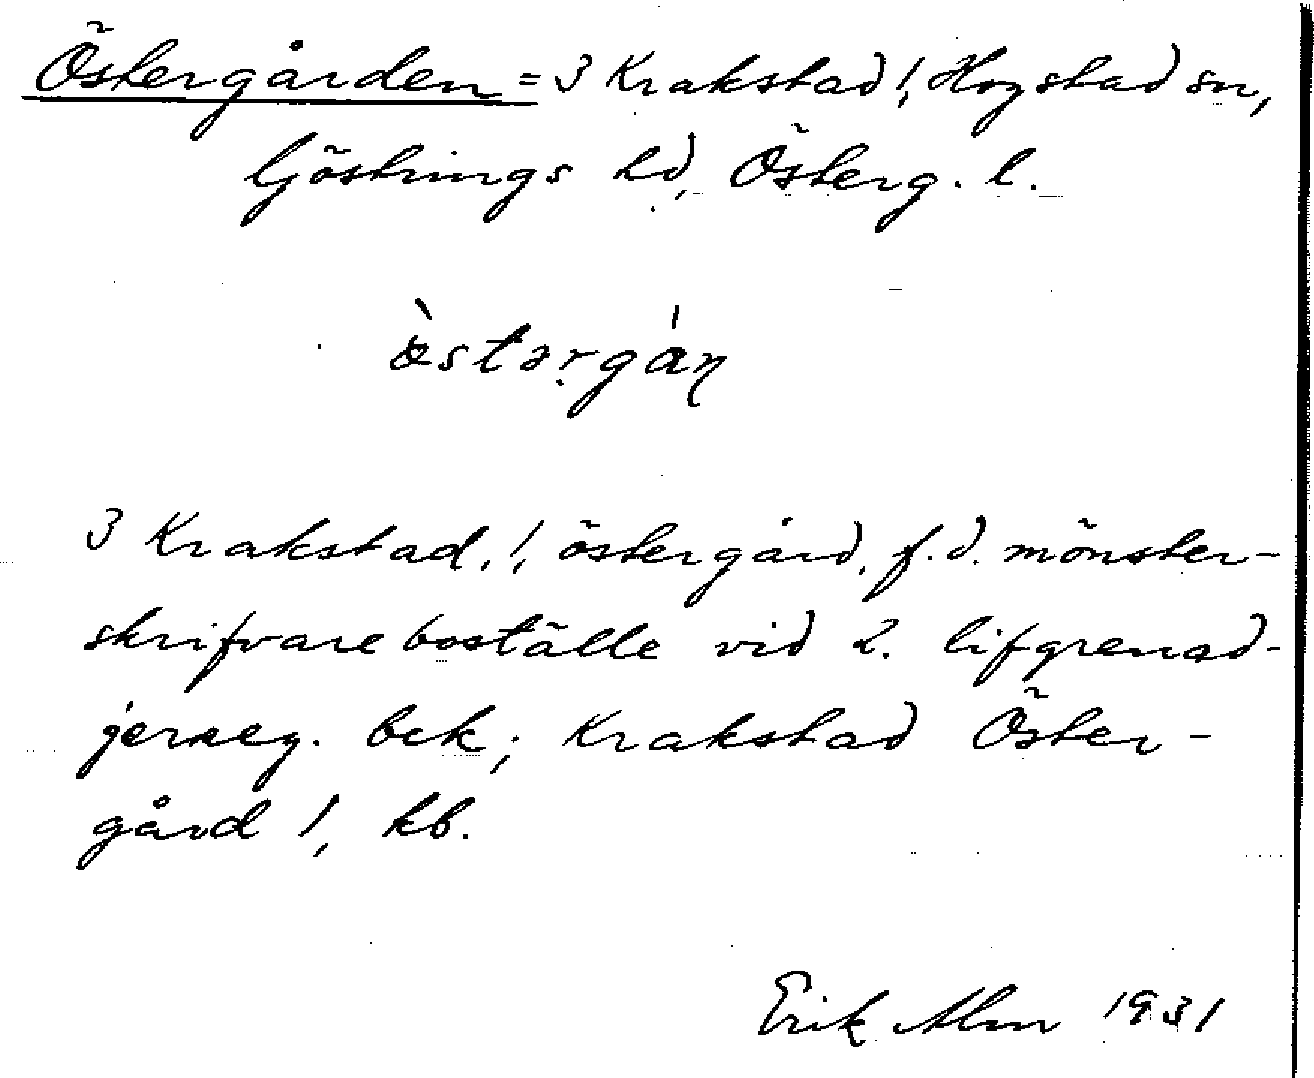 Östergården = 3 Krakstad 1, Hogstad sn,
Göstrings hd, Österg. l.
östergán
3 Krakstad, 1, östergård, f.d. mönster-
skrifvareboställe vid 2. lifgrenad-
jerreg. bek; Krakstad Öster-
gård 1, kb.
Erik Alm 1931